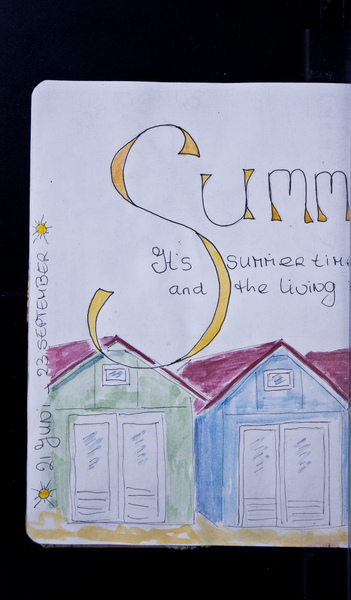 Summ
It's summertime
and the living
21 Juni - 23 SEPTEMBER